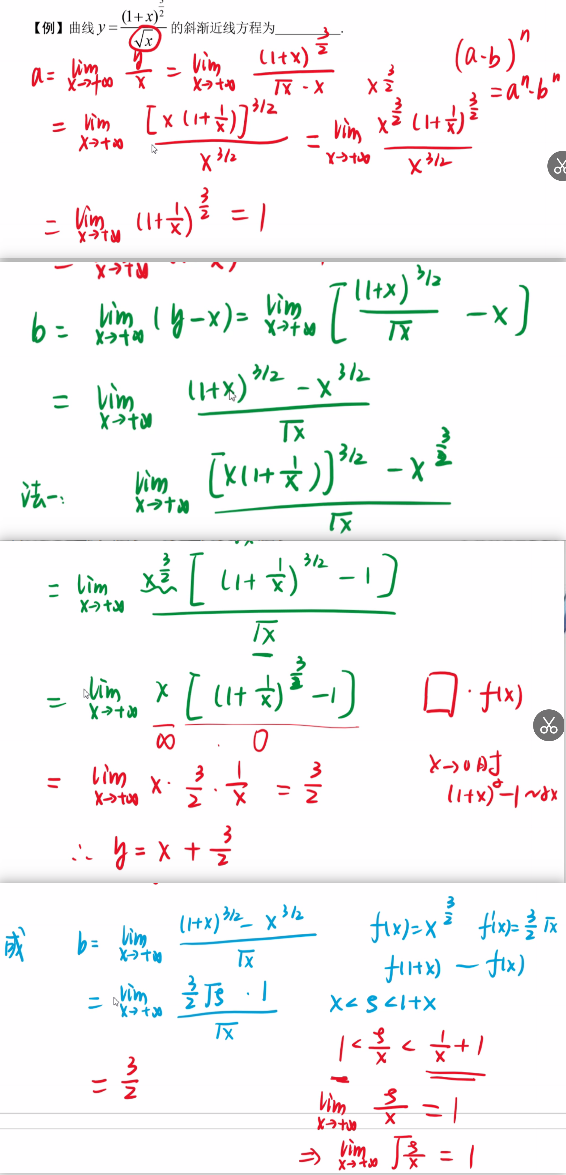 【例】曲线 y = (1+x)^{3/2}/√x 的斜渐近线方程为________.
a = lim_{x→+∞} y/x = lim_{x→+∞} (1+x)^{3/2}/(√x·x)   x^{3/2}   (a·b)^n
= a^n·b^n
= lim_{x→+∞} [x(1+1/x)]^{3/2}/x^{3/2} = lim_{x→+∞} x^{3/2}(1+1/x)^{3/2}/x^{3/2}
= lim_{x→+∞} (1+1/x)^{3/2} = 1
x→+∞
b = lim_{x→+∞} (y−x) = lim_{x→+∞} [(1+x)^{3/2}/√x − x]
= lim_{x→+∞} ((1+x)^{3/2} − x^{3/2})/√x
法一: lim_{x→+∞} ([x(1+1/x)]^{3/2} − x^{3/2})/√x
= lim_{x→+∞} x^{3/2}[(1+1/x)^{3/2} − 1]/√x
= lim_{x→+∞} x[(1+1/x)^{3/2} − 1]   □·f(x)
∞ · 0
= lim_{x→+∞} x·3/2·1/x = 3/2   x→0时
(1+x)^α−1~αx
∴ y = x + 3/2
或 b = lim_{x→+∞} ((1+x)^{3/2} − x^{3/2})/√x   f(x)=x^{3/2}   f'(x)=3/2√x
f(1+x) − f(x)
= lim_{x→+∞} (3/2√ξ·1)/√x   x<ξ<1+x
= 3/2   1<ξ/x<1/x+1
lim_{x→+∞} ξ/x = 1
⇒ lim_{x→+∞} √(ξ/x) = 1